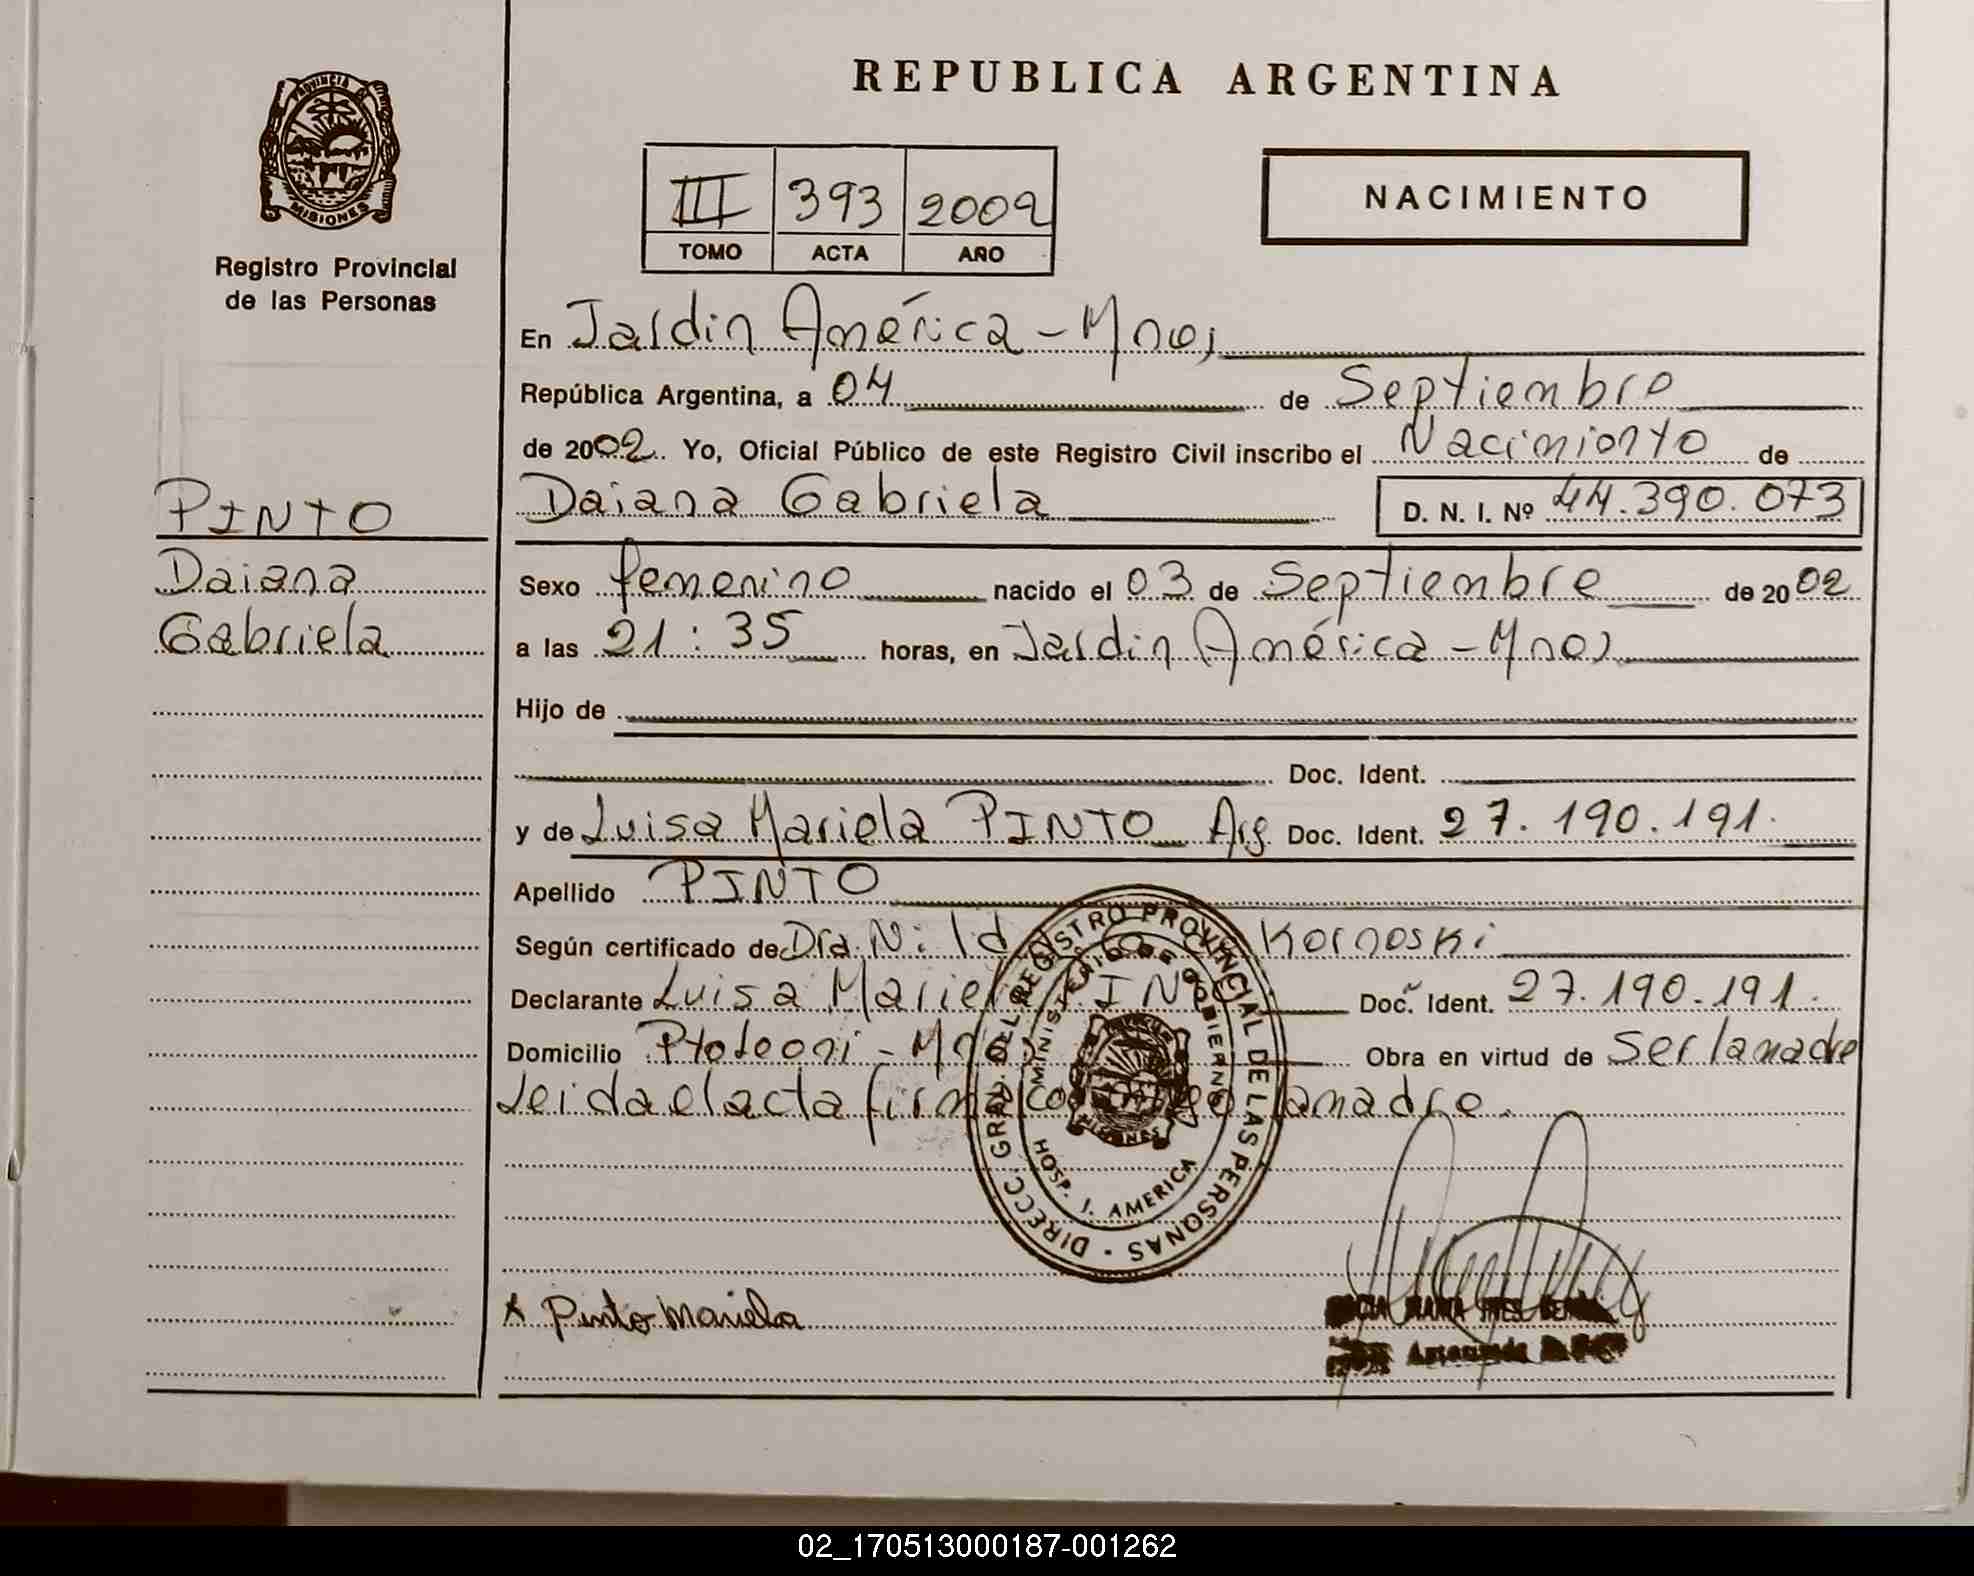 REPUBLICA ARGENTINA
PROVINCIA DE
MISIONES
Registro Provincial
de las Personas
III 393 2002
TOMO ACTA AÑO
NACIMIENTO
En Jardin América - Mnes
República Argentina, a 04 de Septiembre
de 2002. Yo, Oficial Público de este Registro Civil inscribo el Nacimiento de
Daiana Gabriela D. N. I. Nº 44.390.073
PINTO
Daiana
Gabriela
Sexo femenino nacido el 03 de Septiembre de 2002
a las 21:35 horas, en Jardin América - Mnes
Hijo de
Doc. Ident.
y de Luisa Mariela PINTO Arg Doc. Ident. 27.190.191.
Apellido PINTO
Según certificado de Dra. N: Id Kornoski
Declarante Luisa Mariel PINTO Doc. Ident. 27.190.191.
Domicilio Pto Leoni - Mnes Obra en virtud de Ser la madre
Leida el acta firma conmigo la madre.
DIRECC. GRAL. DEL REGISTRO PROVINCIAL DE LAS PERSONAS
MINISTERIO DE GOBIERNO
MISIONES
HOSP. J. AMERICA
x Pinto Mariela
02_170513000187-001262